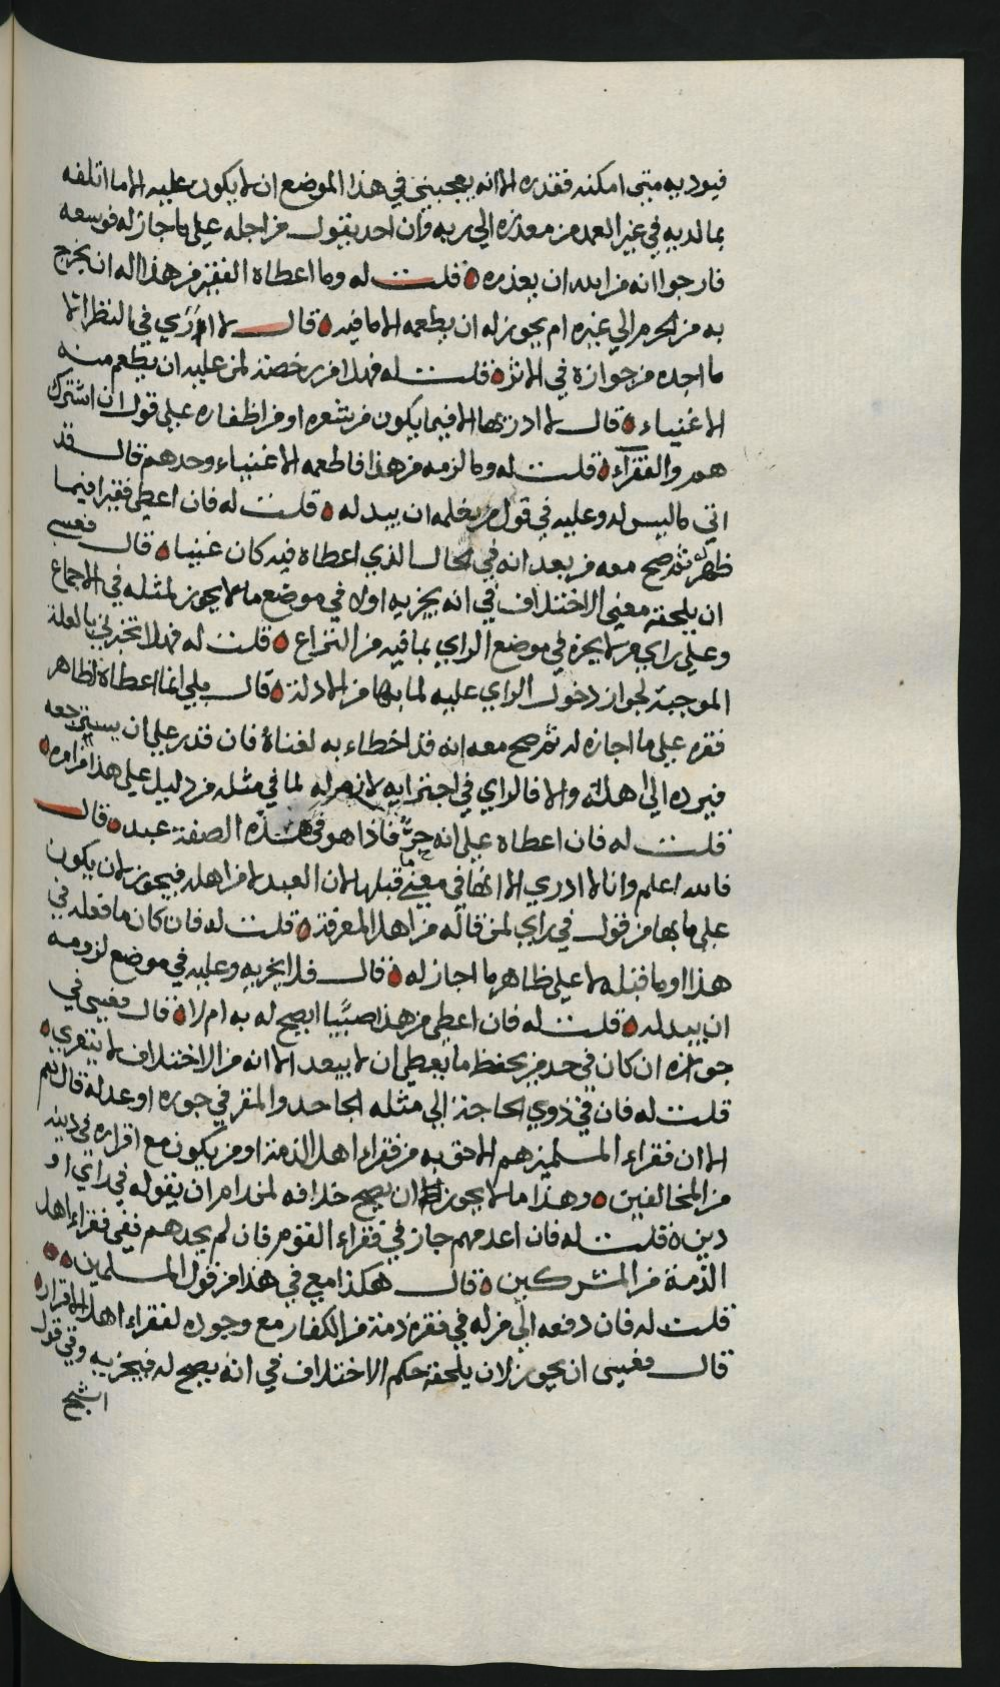 فيوديه متى امكنه فقدره الا انه يعجبني في هذا الموضع ان لا يكون عليه الا ما اتلفه
بما لديه في غير العمد من معذره الى ربه وان احد يقول من اجله على ما جاز له فوسعه
فارجوا انه من الله ان يعذره قلت له وما اعطاه الفقير من هذا اله ان يخرج
به من الحرم الى غيره ام يجوز له ان يطعمه الا ما فيه قال لا ادري في النظر الا
ما اجده من جوازه في الاثر قلت له فهل من رخصة لمن عليه ان يطعم منه
الاغنياء قال لا ادريها الا فيما يكون من شعره او من اظفاره على قول ان اشترك
هم والفقراء قلت له وما لزمه من هذا فاطعمه الاغنياء وحدهم قال قد
اتى ما ليس له وعليه في قول من يعلمه ان يبدله قلت له فان اعطى فقيرا فيما
ظهر له ثم صح معه من بعد انه في الحال الذي اعطاه فيه كان غنيا قال فعسى
ان يلحقه معنى الاختلاف في انه يجزيه اولا في موضع ما لا يجوز لمثله في الاجماع
وعلى راي من لا يجزه في موضع الراي بما فيه من النزاع قلت له فهلا تخبرني بالعلة
الموجبة لجواز دخول الراي عليه لما بها من الادلة قال بلى انما اعطاه لظاهر
فقره على ما اجازه له ثم صح معه انه قد اخطاء به لغناه فان قدر على ان يسترجعه
فيرده الى اهله والا فالراي في اجتزايه لازم له لما في مثله من دليل على هذا من امره
قلت له فان اعطاه على انه حر فاذا هو في هذه الصفة عبد قال
فالله اعلم وانا لا ادري الا انها في معنى ما قبلها لان العبد لا من اهله فيجوز لان يكون
على ما بها من قول في راي لمن قاله من اهل المعرفة قلت له فان كان ما فعله في
هذا او ما قبله لا على ظاهر ما اجاز له قال فلا يجزيه وعليه في موضع لزومه
ان يبدله قلت له فان اعطى من هذا صبيا ايصح له به ام لا قال فعسى في
جوازه ان كان في حد من يحفظ ما يعطى ان لا يبعد الا انه من الاختلاف لا يتعرى
قلت له فان في ذوي الحاجة الى مثله الجاحد والمقر في جوره او عدله قال نعم
الا ان فقراء المسلمين هم الاحق به من فقراء اهل الذمة او من يكون مع اقراره في دينه
من المخالفين وهذا ما لا يجوز ان يصح خلافه لمن رام ان يقوله في راي او
دين قلت له فان اعدمهم جاز في فقراء القوم فان لم يجدهم ففي فقراء اهل
الذمة من المشركين قال هكذا معي في هذا من قول المسلمين
قلت له فان دفعه الى من له في فقره ذمة من الكفار مع وجوده لفقراء اهل الاقرار
قال فعسى ان يجوز لان يلحقه حكم الاختلاف في انه يصح له فيجزيه وفي قول
الشيخ